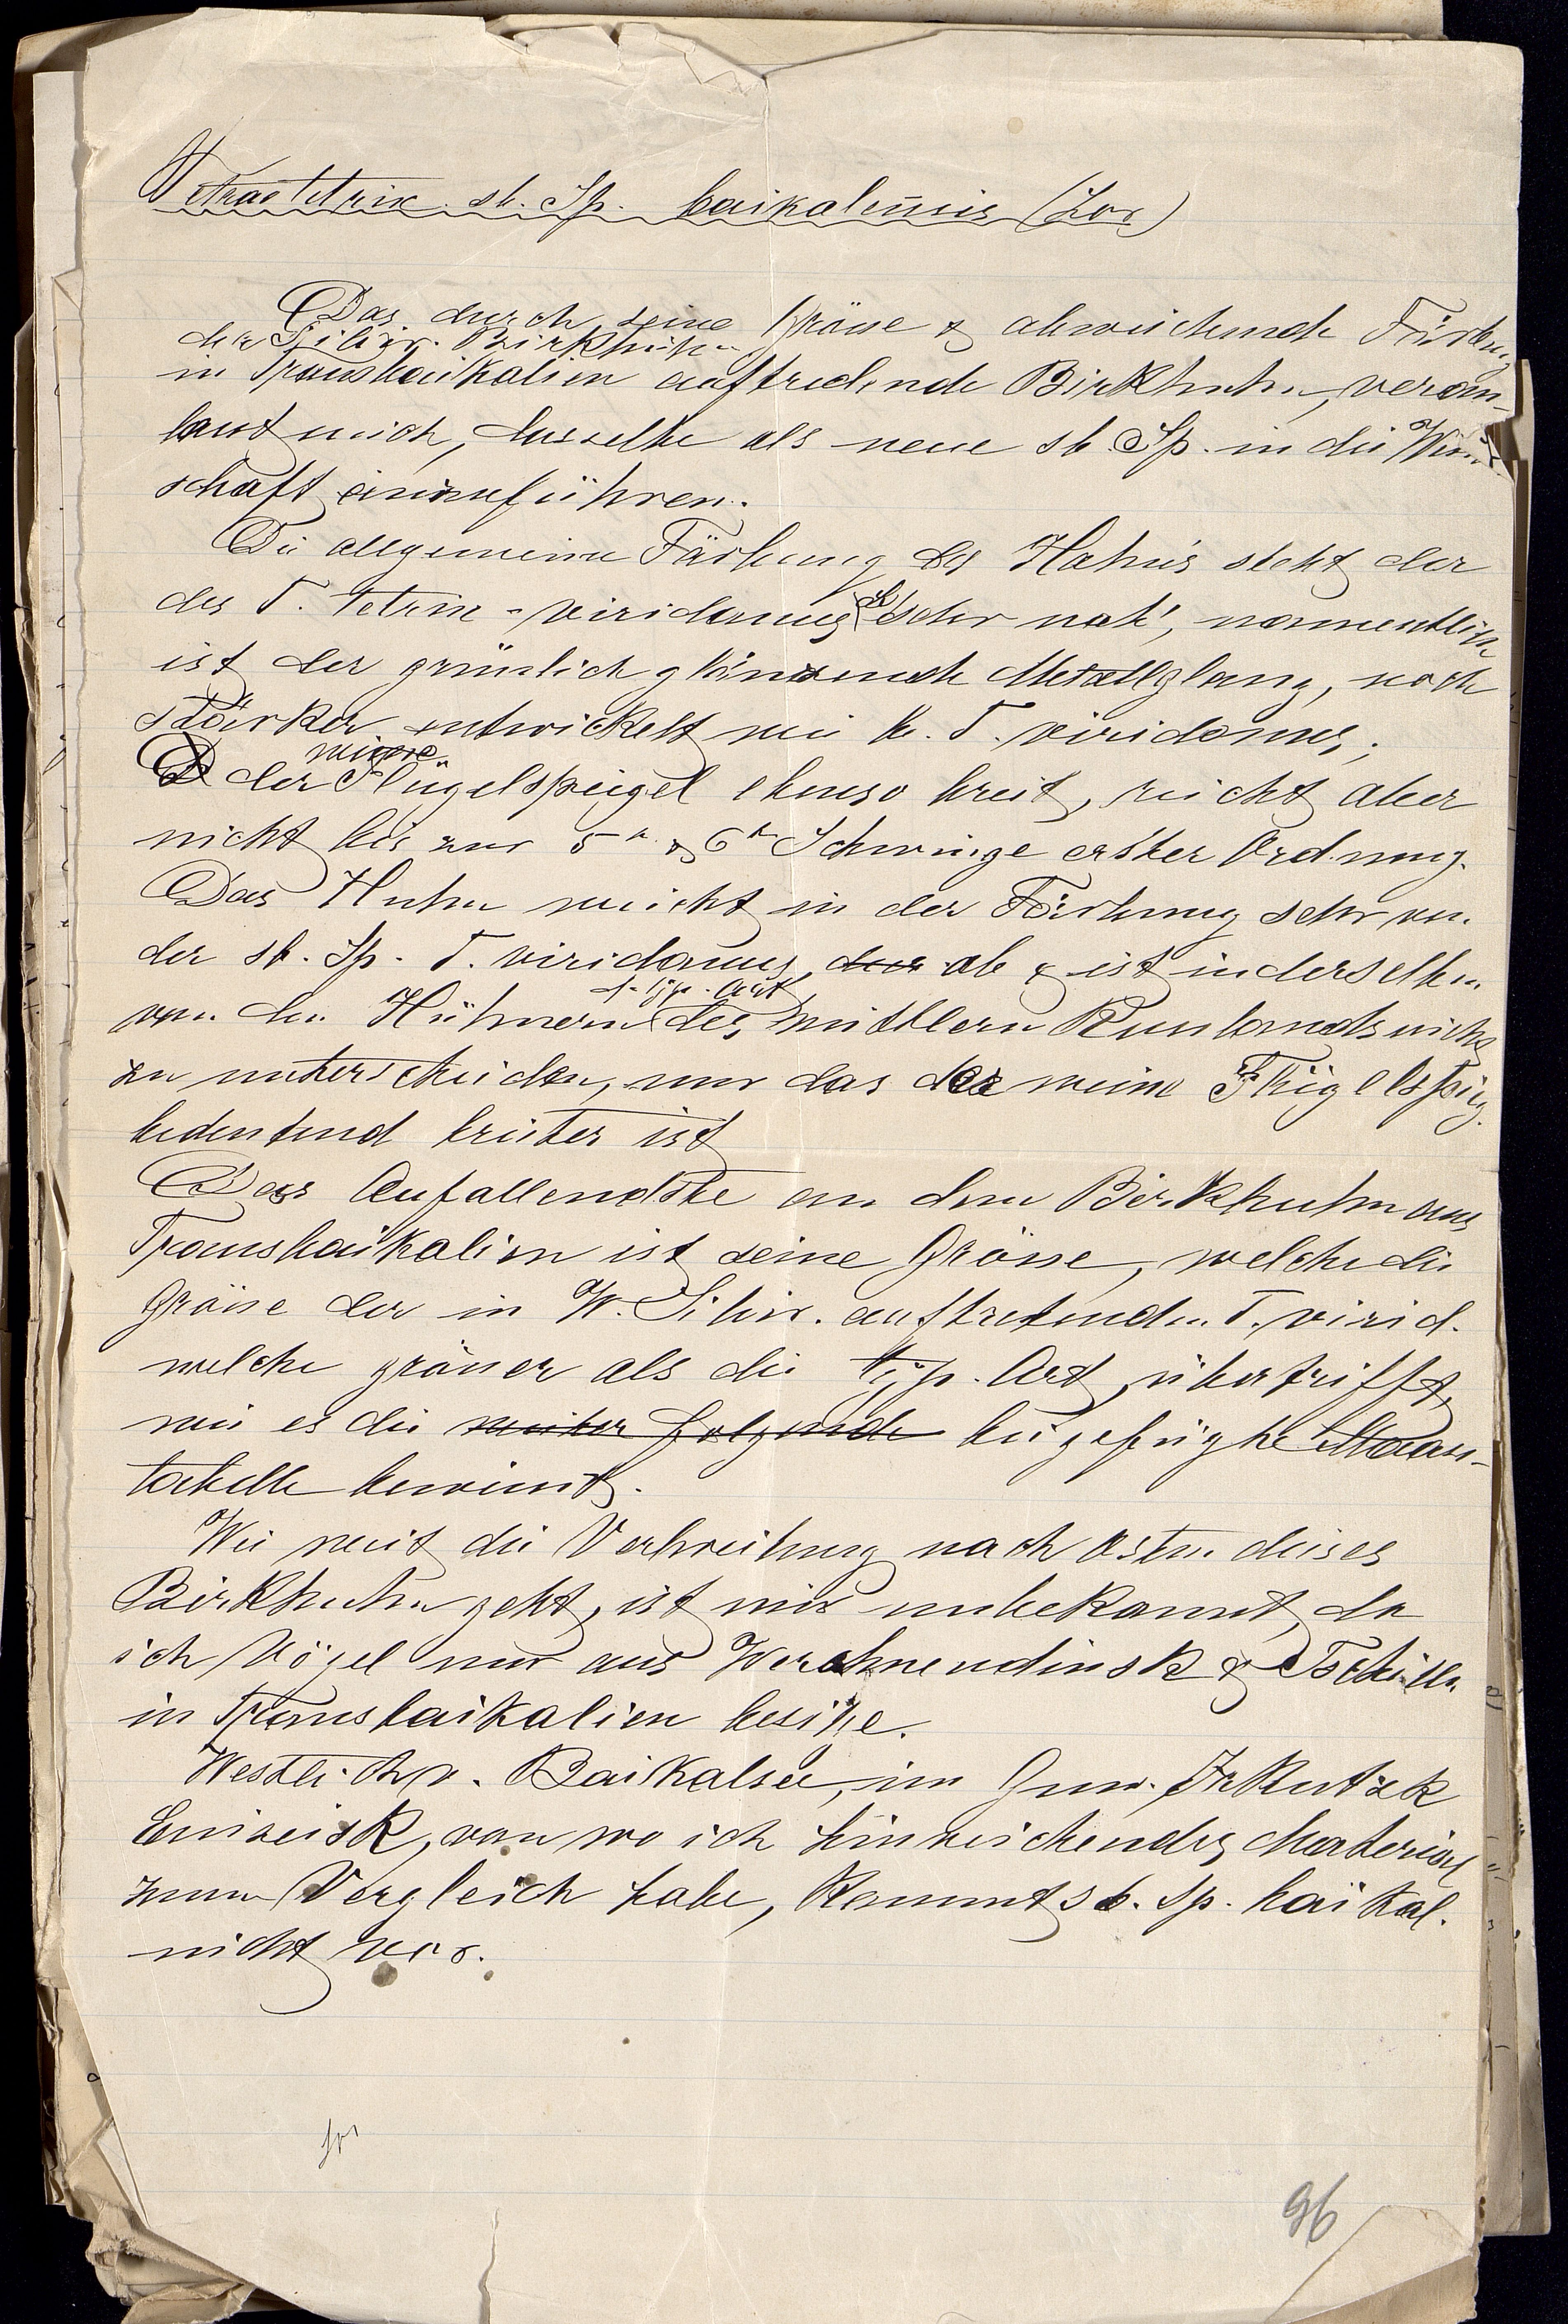 Tetrao tetrix sb. Sp. baikalensis (Lor)
Das durch seine Grösse & abweichende Färbung
der Sibir. Birkhühn
in Transbaikalien auftredende Birkhuhn, veran-
lasst mich, dasselbe als neue sb. Sp. in die Wissen
schaft einzuführen.
Die allgemeine Färbung des Hahns steht der
des T. tetrix-viridanus sehr nah', namentlich
ist der grünlich glänzende Metallglanz, noch
stärker entwickelt wie b. T. viridanus;
weisse
der Flügelspiegel ebenso breit, reicht aber
nicht bis zur 5n & 6n Schwinge erster Ordnung.
Das Huhn weicht in der Färbung sehr von
der sb. Sp. T. viridanus ab & ist in derselben
d. typ. Art
von den Hühnern des mittlern Russlands nicht
zu unterscheiden, nur das der weisse Flügelspieg.
bedeutend breiter ist
Das Aufallendste an dem Birkhuhn aus
Transbaikalien ist seine Grösse, welche die
Grösse der in W. Sibir. auftretenden T. virid.
welche grösser als die typ. Art, übertrifft,
wie es die weiter folgende beigefügte Maass-
tabelle beweisst.
Wie weit die Verbreitung nach Osten dieses
Birkhuhn geht, ist mir unbekannt, da
ich Vögel nur aus Werchneudinsk & Tschita
in Transbaikalien besitze.
Westlich v. Baikalsee, im Gouv. Irkutzk
Eniseisk, von wo ich hinreichendes Material
zum Vergleich habe, kommt sb. sp. baikal.
nicht vor.
96